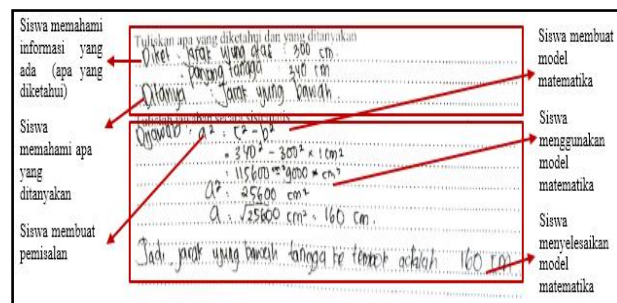 Siswa memahami
informasi yang
ada (apa yang
diketahui)
Siswa
memahami apa
yang
ditanyakan
Siswa membuat
pemisalan
Tuliskan apa yang diketahui dan yang ditanyakan
Diket : Jarak ujung atas : 300 cm.
: Panjang tangga : 340 cm
Ditanya : Jarak ujung bawah.
secara sistematis
Dijawab : a² : c² - b²
= 340² - 300² × 1 cm²
= 115600 - 9000 × cm²
a² = 25600 cm²
a = √25600 cm² = 160 cm.
Jadi, jarak ujung bawah tangga ke tembok adalah 160 cm
Siswa membuat
model
matematika
Siswa
menggunakan
model
matematika
Siswa
menyelesaikan
model
matematika